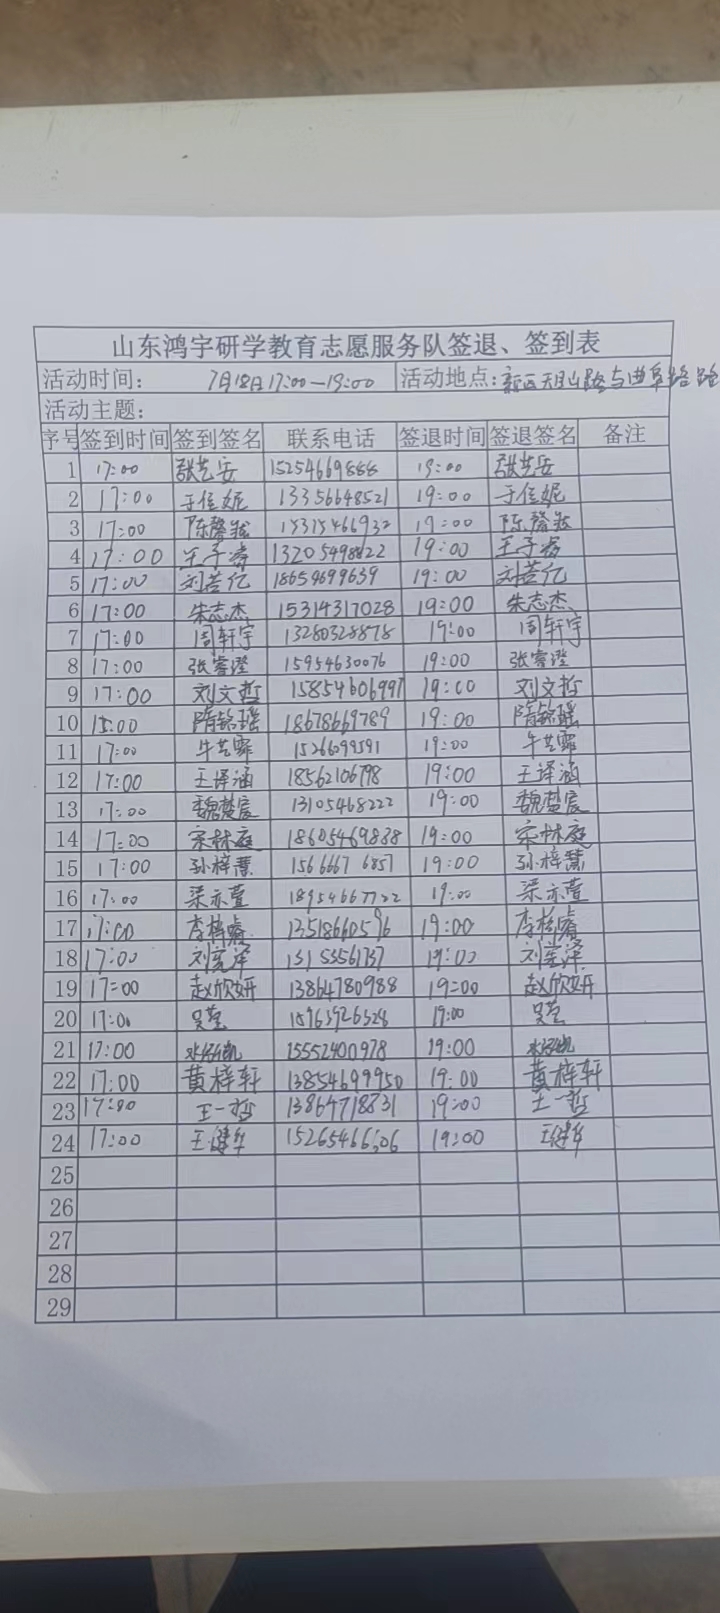 山东鸿宇研学教育志愿服务队签退、签到表
活动时间: 7月18日17:00—19:00 活动地点: 新区天目山路与曲阜路路
活动主题:
序号 签到时间 签到签名 联系电话 签退时间 签退签名 备注
1 17:00 15254669888 19:00
2 17:00 于佳妮 13356648521 19:00 于佳妮
3 17:00 陈馨 19:00 陈馨
4 17:00 王子睿 13205498622 19:00 王子睿
5 17:00 刘若亿 18654699639 19:00 刘若亿
6 17:00 朱志杰 15314317028 19:00 朱志杰
7 17:00 周轩宇 13280328878 19:00 周轩宇
8 17:00 张睿澄 15954630076 19:00 张睿澄
9 17:00 刘文哲 15854606997 19:00 刘文哲
10 隋铭瑶 18678669789 19:00 隋铭瑶
11 17:00 牛艺霏 1526699591 19:00 牛艺霏
12 17:00 王译涵 18562106798 19:00 王译涵
13 17:00 魏楚宸 13105468222 19:00 魏楚宸
14 17:00 宋林庭 18605469838 19:00 宋林庭
15 17:00 孙梓慧 15666676857 19:00 孙梓慧
16 17:00 梁亦萱 18954667722 19:00 梁亦萱
17 17:00 李梓睿 13518660596 19:00 李梓睿
18 17:00 刘宪泽 19:00 刘宪泽
19 17:00 赵欣妍 13864780988 19:00 赵欣妍
20 17:00 吴莹 15963926328 19:00 吴莹
21 17:00 15552400978 19:00
22 17:00 黄梓轩 13854699950 19:00 黄梓轩
23 17:00 王一哲 13864718831 19:00 王一哲
24 17:00 王健华 15265466606 19:00 王健华
25
26
27
28
29